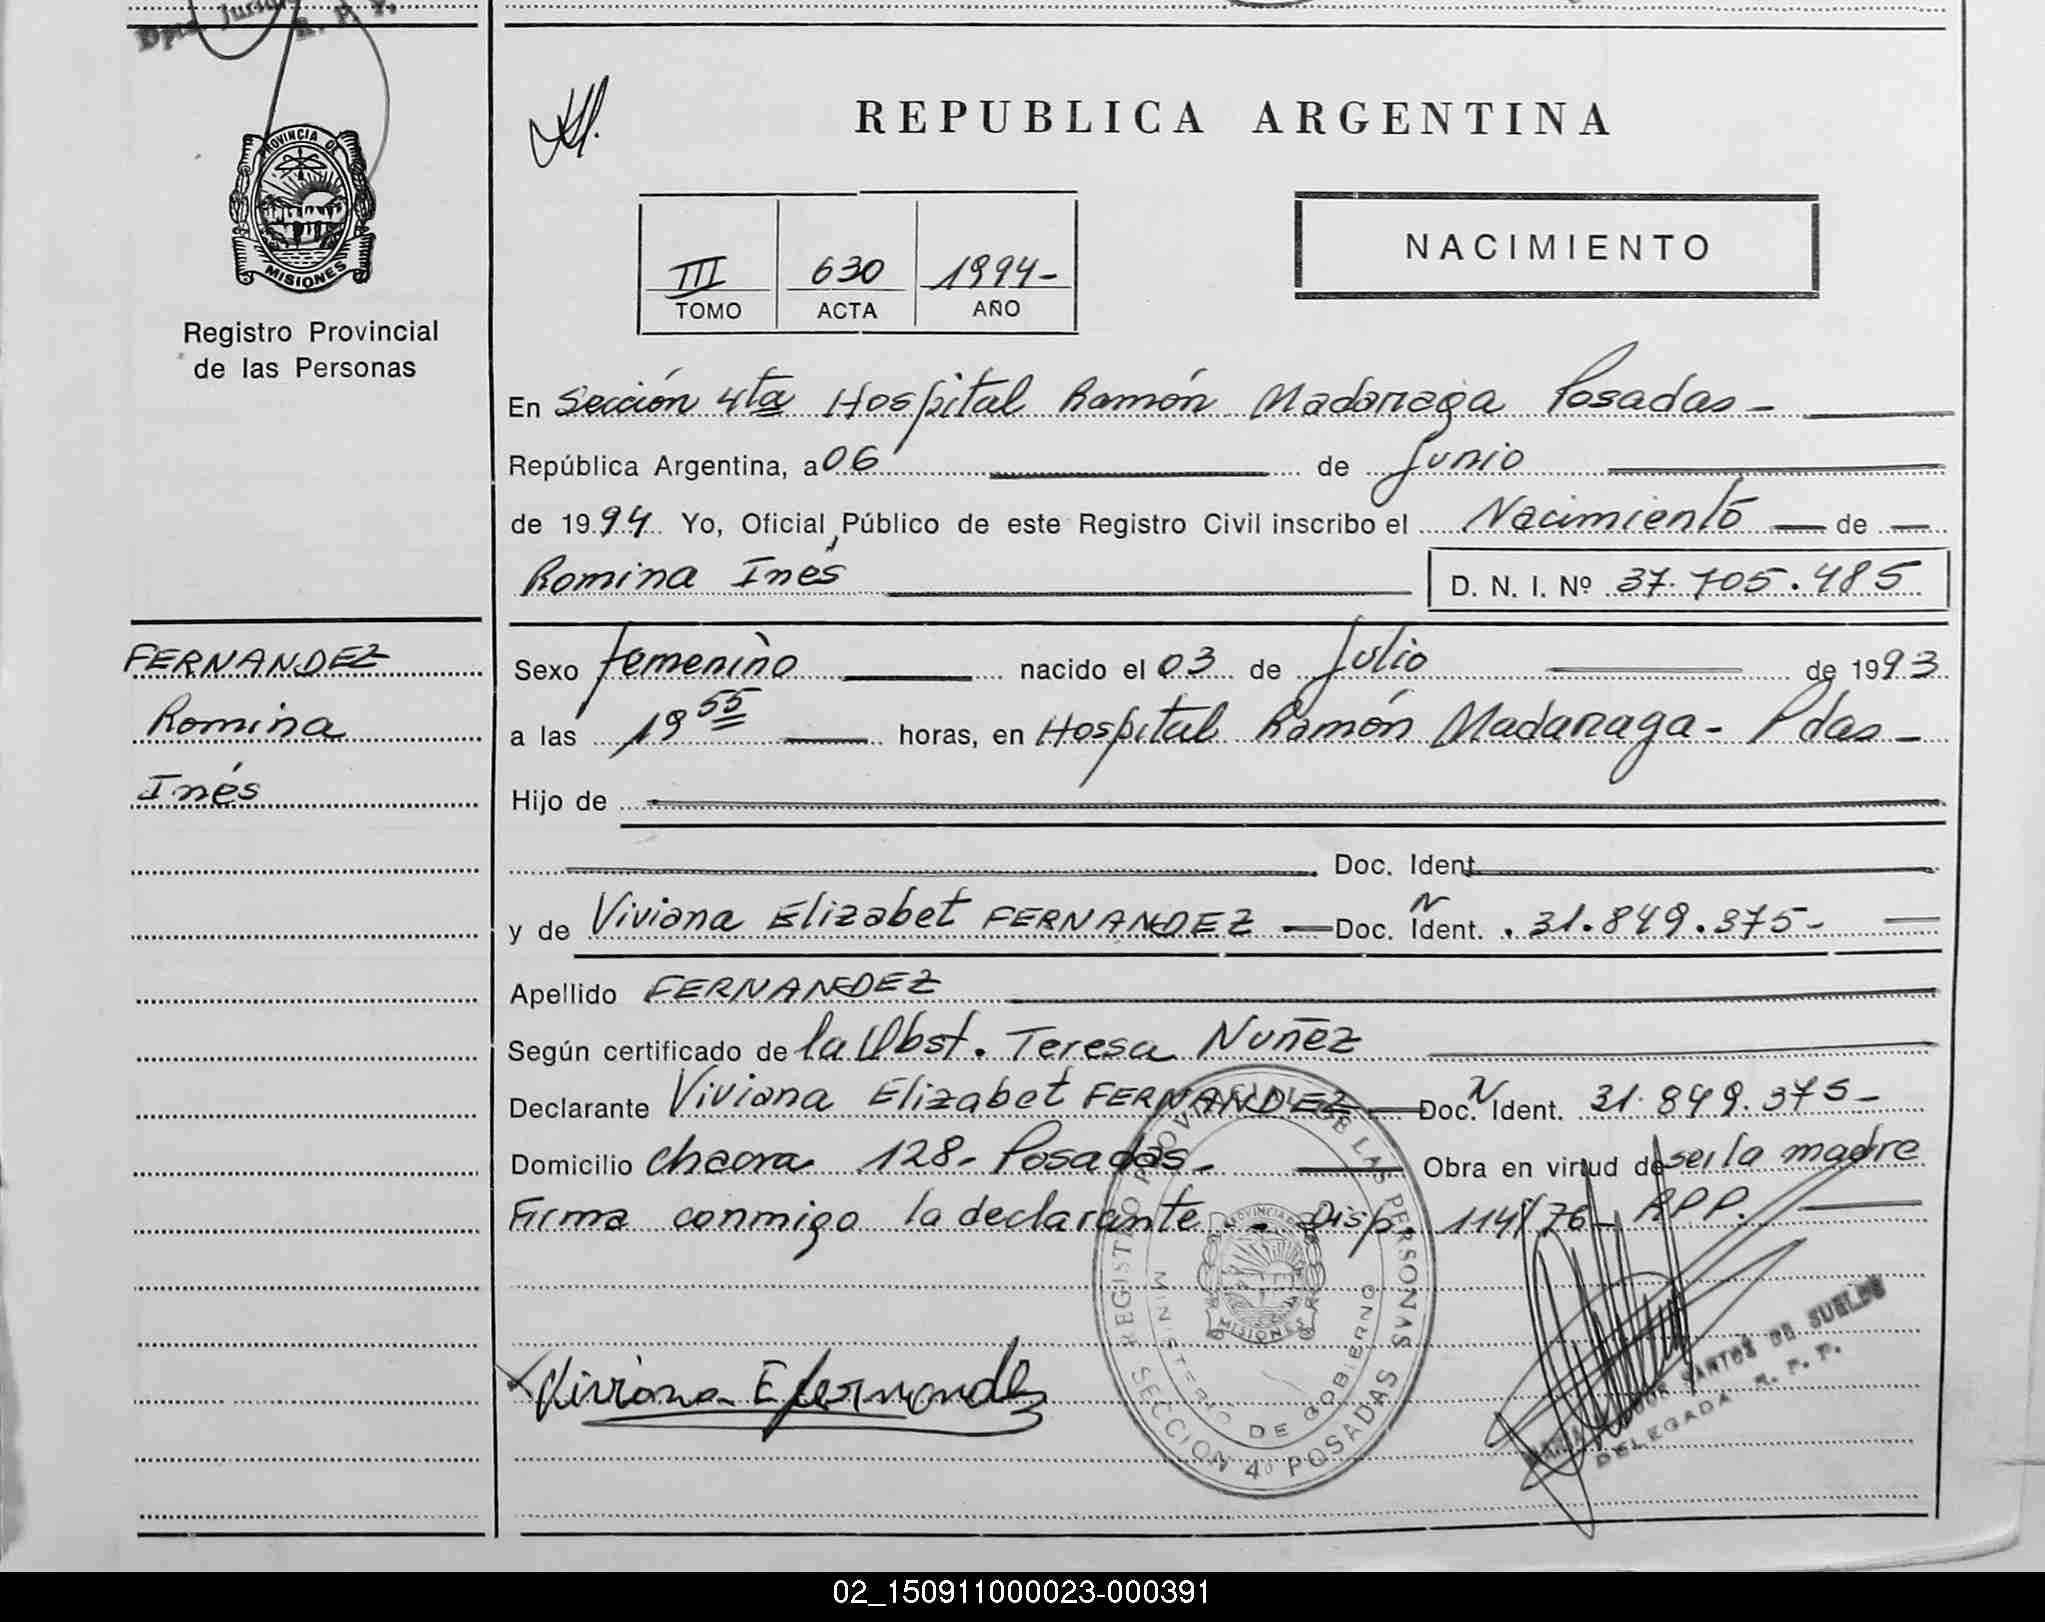 Dpto Jurid
R. P. P.
REPUBLICA ARGENTINA
PROVINCIA DE
MISIONES
Registro Provincial
de las Personas
III 630 1994-
TOMO ACTA AÑO
NACIMIENTO
En Sección 4ta Hospital Ramón Madariaga Posadas-
República Argentina, a 06 de Junio
de 1994 Yo, Oficial Público de este Registro Civil inscribo el Nacimiento de
Romina Inés
D. N. I. Nº 37.705.485
FERNANDEZ
Romina
Inés
Sexo femenino nacido el 03 de Julio de 1993
a las 19 55 horas, en Hospital Ramón Madariaga- Pdas-
Hijo de
Doc. Ident.
y de Viviana Elizabet FERNANDEZ Doc. Ident. N 31.849.375-
Apellido FERNANDEZ
Según certificado de la Obst. Teresa Nuñez
Declarante Viviana Elizabet FERNANDEZ Doc. Ident. N 31.849.375-
Domicilio chacra 128- Posadas- Obra en virtud de ser la madre
Firma conmigo la declarante.- Disp. 114/76- RPP.
Viviana E fernandez
REGISTRO PROVINCIAL DE LAS PERSONAS
MINISTERIO DE GOBIERNO
PROVINCIA DE
MISIONES
SECCION 4º POSADAS
SANTOS DE SUELDO
DELEGADA R. P. P.
02_150911000023-000391